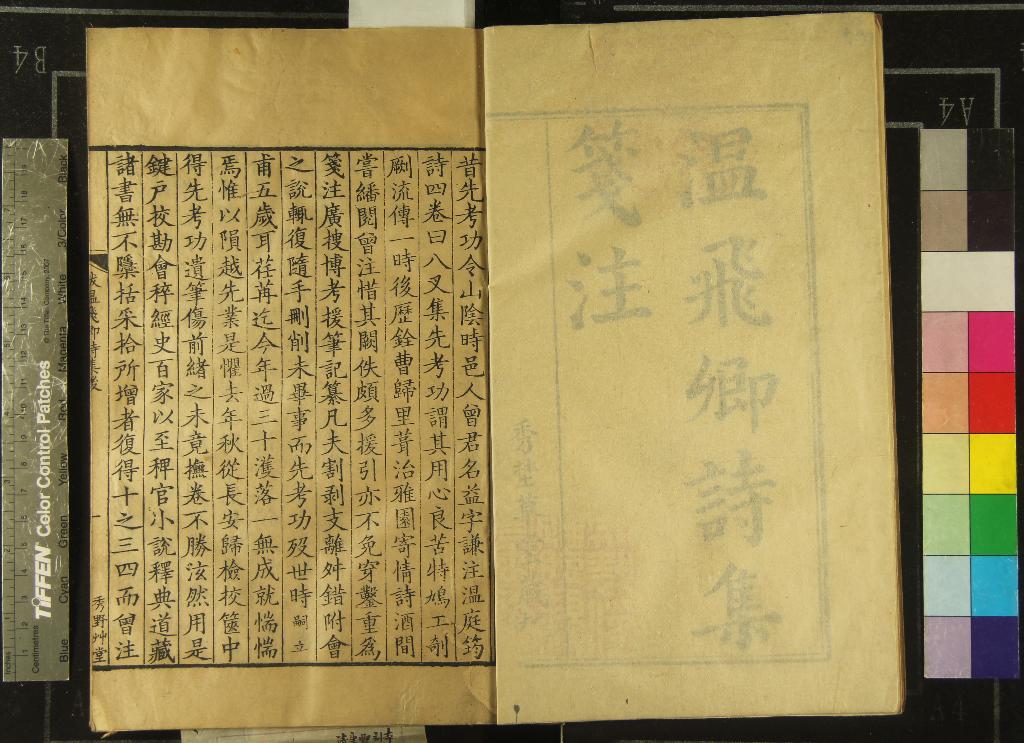 溫飛卿詩集
箋注
昔先考功令山陰時邑人曾君名益字謙注溫庭筠
詩四卷曰八叉集先考功謂其用心良苦特鳩工剞
劂流傳一時後歷銓曹歸里葺治雅園寄情詩酒間
嘗繙閱曾注惜其闕佚頗多援引亦不免穿鑿重爲
箋注廣搜博考援筆記纂凡夫割剥支離舛錯附會
之說輒復隨手刪削未畢事而先考功歿世時嗣立
甫五歲耳荏苒迄今年過三十濩落一無成就惴惴
焉惟以隕越先業是懼去年秋從長安歸檢挍篋中
得先考功遺筆傷前緒之未竟撫卷不勝泫然用是
鍵戶校勘會稡經史百家以至稗官小說釋典道藏
諸書無不檃括采拾所增者復得十之三四而曾注
跋溫飛卿詩集後
一
秀野艸堂
B4
A4
A4
TIFFEN Color Control Patches
© The Tiffen Company, 2007
Inches
Centimetres
Blue
Cyan
Green
Yellow
Red
Magenta
White
3/Color
Black